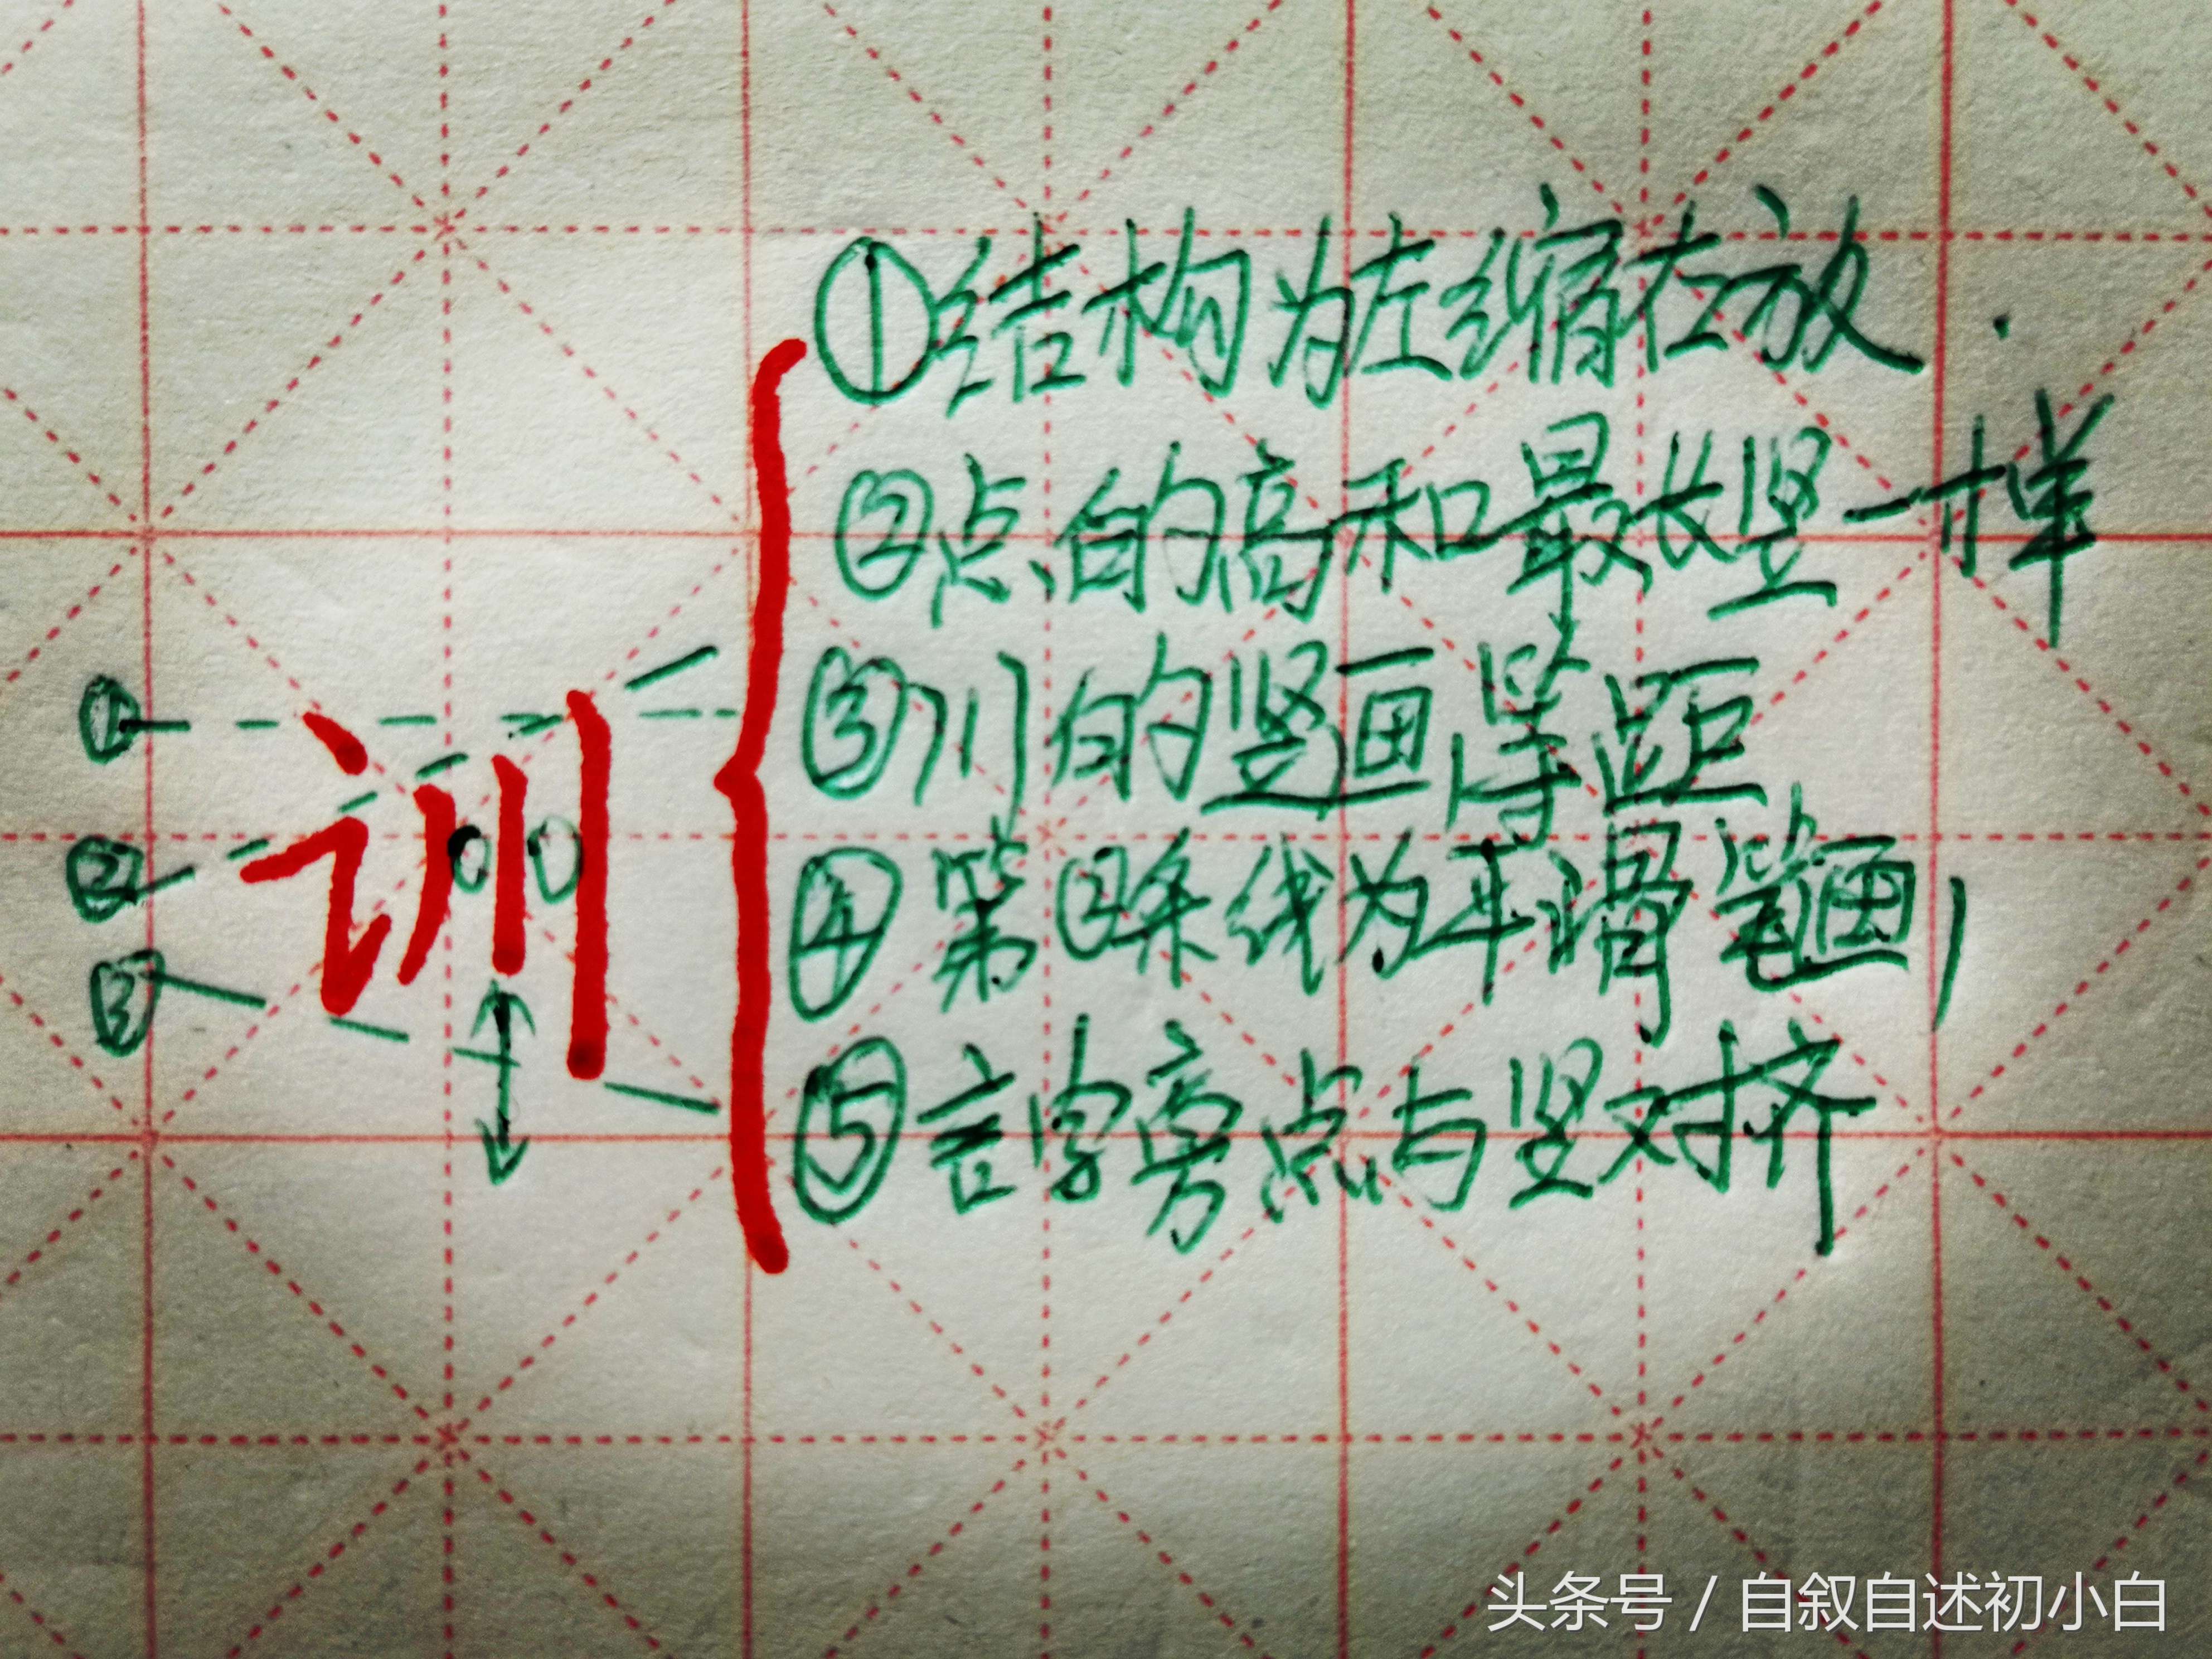 ①结构为左缩右放.
②点的高和最长竖一样
③川的竖画等距
④第②条线为平滑笔画,
⑤言字旁点与竖对挤
①
②
③
训
头条号 / 自叙自述初小白